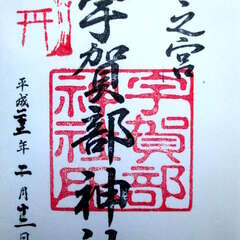 之宮
宇賀部神社
宇賀部
神社印
平成二十三年二月十二日